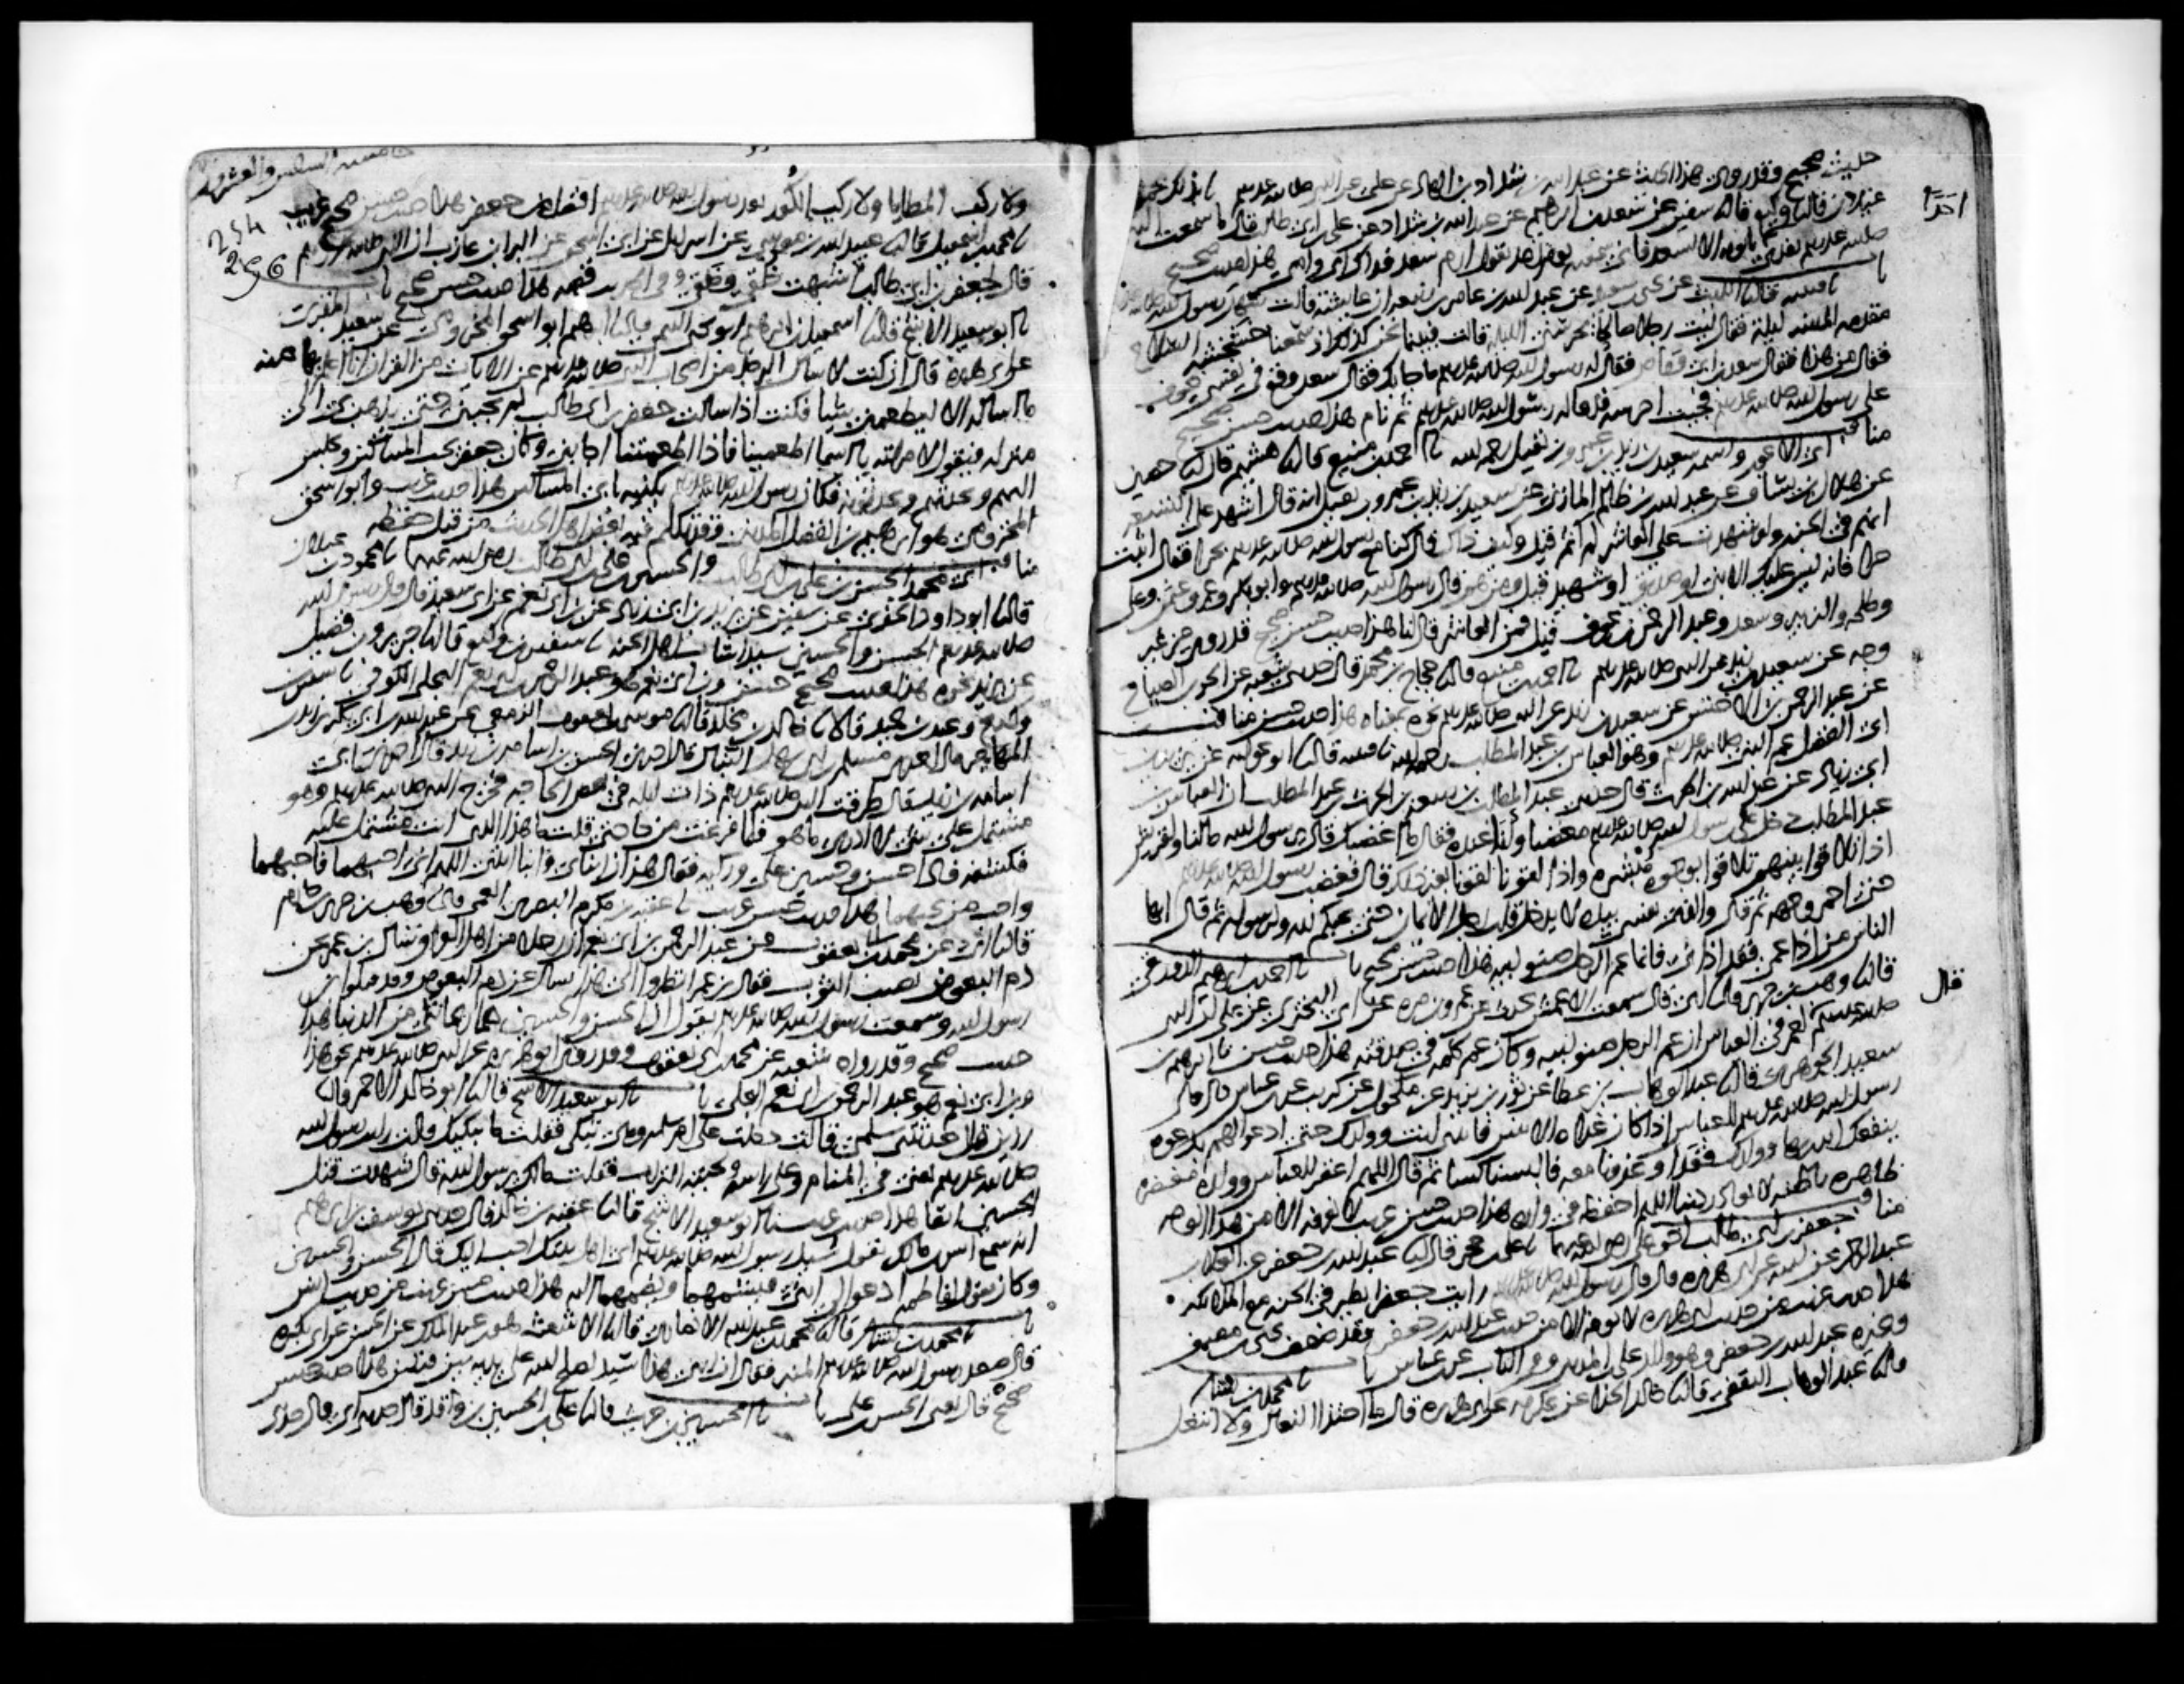 حديث صحيح وقد روي هذا الحديث عن عبدالله بن شداد بن الهاد عن علي عن النبي صلى الله عليه وسلم نا بذلك محمود
احدا
غيلان قال نا وكيع قال نا سفين عن سعد بن ابرهيم عن عبدالله بن شداد عن علي بن ابي طالب قال ما سمعت النبي
صلى الله عليه وسلم يفدي احدا بابويه الا لسعد فاني سمعته يوم احد يقول ارم سعد فداك ابي وامي هذا حديث صحيح
نا قتيبة قال نا الليث عن يحيى بن سعيد عن عبدالله بن عامر بن ربيعة ان عايشة قالت سهر رسول الله صلى الله عليه وسلم
مقدمه المدينة ليلة فقال ليت رجلا صالحا يحرسني الليلة قالت فبينما نحن كذلك اذ سمعنا خشخشة السلاح
فقال من هذا فقال سعد بن ابي وقاص فقال له رسول الله صلى الله عليه وسلم ما جا بك فقال سعد وقع في نفسي خوف
على رسول الله صلى الله عليه وسلم فجيت احرسه فدعا له رسول الله صلى الله عليه وسلم ثم نام هذا حديث حسن صحيح
مناقب ابي الاعور واسمه سعيد بن زيد بن عمرو بن نفيل رحمه الله نا احمد بن منيع قال نا هشيم قال نا حصين
عن هلال بن يساف عن عبدالله بن ظالم المازني عن سعيد بن زيد بن عمرو بن نفيل انه قال اشهد على التسعة
انهم في الجنة ولو شهدت على العاشر لم آثم قيل وكيف ذاك قال كنا مع رسول الله صلى الله عليه وسلم بحرا فقال اثبت
حرا فانه ليس عليك الا نبي او صديق او شهيد قيل ومن هم قال رسول الله صلى الله عليه وسلم وابو بكر وعمر وعثمن وعلي
وطلحة والزبير وسعد وعبد الرحمن بن عوف قيل فمن العاشر قال انا هذا حديث حسن صحيح قد روي من غير
وجه عن سعيد بن زيد عن النبي صلى الله عليه وسلم نا احمد بن منيع قال نا حجاج بن محمد قال حدثني شعبة عن الحر بن الصياح
عن عبد الرحمن بن الاخنس عن سعيد بن زيد عن النبي صلى الله عليه وسلم نحوه بمعناه هذا حديث حسن مناقب
ابي الفضل عم النبي صلى الله عليه وسلم وهو العباس بن عبد المطلب رحمه الله نا قتيبة قال نا ابو عوانة عن يزيد بن
ابي زياد عن عبدالله بن الحرث قال حدثني عبد المطلب بن ربيعة بن الحرث بن عبد المطلب ان العباس بن
عبد المطلب دخل على رسول الله صلى الله عليه وسلم مغضبا وانا عنده فقال ما اغضبك قال يرسول الله ما لنا ولقريش
اذا تلاقوا بينهم تلاقوا بوجوه مبشرة واذا لقونا لقونا بغير ذلك قال فغضب رسول الله صلى الله عليه وسلم
حتى احمر وجهه ثم قال والذي نفسي بيده لا يدخل قلب رجل الايمان حتى يحبكم لله ولرسوله ثم قال ايها
الناس من اذا عمي فقد اذاني فانما عم الرجل صنو ابيه هذا حديث حسن صحيح نا احمد بن ابرهيم الدورقي
قال نا وهب بن جرير قال نا ابي قال سمعت الاعمش يحدث عن عمرو بن مرة عن ابي البختري عن علي ان النبي
قال
صلى الله عليه وسلم لعمر في العباس ان عم الرجل صنو ابيه وكان عمر كلمه في صدقته هذا حديث حسن نا ابرهيم بن
سعيد الجوهري قال نا عبد الوهاب بن عطا عن ثور بن يزيد عن مكحول عن كريب عن ابن عباس قال قال
رسول الله صلى الله عليه وسلم للعباس اذا كان غداة الاثنين فاتني انت وولدك حتى ادعو لهم بدعوة
ينفعك الله بها وولدك فغدا وغدونا معه فالبسنا كسا ثم قال اللهم اغفر للعباس وولده مغفرة
ظاهرة باطنة لا تغادر ذنبا اللهم احفظه في ولده هذا حديث حسن غريب لا نعرفه الا من هذا الوجه
مناقب جعفر بن ابي طالب اخو علي رضي الله عنهما نا علي بن حجر قال نا عبدالله بن جعفر عن العلا بن
عبد الرحمن عن ابيه عن ابي هريرة قال قال رسول الله صلى الله عليه وسلم رايت جعفرا يطير في الجنة مع الملايكة
هذا حديث غريب من حديث ابي هريرة لا نعرفه الا من حديث عبدالله بن جعفر وقد ضعفه يحيى بن معين
وغيره عبدالله بن جعفر وهو والد علي بن المديني وفي الباب عن ابن عباس نا محمد بن بشار
قال نا عبد الوهاب الثقفي قال نا خالد الحذا عن عكرمة عن ابي هريرة قال ما احتذى النعال ولا انتعل
254
256
ولا ركب المطايا ولا ركب الكور بعد رسول الله صلى الله عليه وسلم افضل من جعفر هذا حديث حسن صحيح غريب
نا محمد بن اسمعيل قال نا عبيد الله بن موسى عن اسرايل عن ابي اسحق عن البرا بن عازب ان النبي صلى الله عليه وسلم
قال لجعفر بن ابي طالب اشبهت خلقي وخلقي وفي الحديث قصة هذا حديث حسن صحيح نا
نا ابو سعيد الاشج قال نا اسمعيل بن ابرهيم ابو يحيى التيمي قال نا ابرهيم ابو اسحق المخزومي عن سعيد المقبري
عن ابي هريرة قال ان كنت لاسال الرجل من اصحاب النبي صلى الله عليه وسلم عن الايات من القران انا اعلم بها منه
ما اساله الا ليطعمني شيا فكنت اذا سالت جعفر بن ابي طالب لم يجبني حتى يذهب بي الى
منزله فيقول لامراته يا اسما اطعمينا فاذا اطعمتنا اجابني وكان جعفر يحب المساكين ويجلس
اليهم ويحدثهم ويحدثونه فكان رسول الله صلى الله عليه وسلم يكنيه بابي المساكين هذا حديث غريب وابو اسحق
المخزومي هو ابرهيم بن الفضل المديني وقد تكلم فيه بعض اهل الحديث من قبل حفظه
مناقب ابي محمد الحسن بن علي بن ابي طالب والحسين بن علي بن ابي طالب رضي الله عنهما نا محمود بن غيلان
قال نا ابو داود الحفري عن سفين عن يزيد بن ابي زياد عن ابن ابي نعم عن ابي سعيد قال قال رسول الله
صلى الله عليه وسلم الحسن والحسين سيدا شباب اهل الجنة نا سفين بن وكيع قال نا جرير وابن فضيل
عن يزيد نحوه هذا حديث صحيح حسن وابن ابي نعم هو عبد الرحمن بن ابي نعم البجلي الكوفي نا سفين بن
وكيع وعبد بن حميد قالا نا خالد بن مخلد قال نا موسى بن يعقوب الزمعي عن عبدالله بن ابي بكر بن زيد بن
المهاجر قال اخبرني مسلم بن ابي سهل النبال قال اخبرني الحسن بن اسامة بن زيد قال اخبرني ابي
اسامة بن زيد قال طرقت النبي صلى الله عليه وسلم ذات ليلة في بعض الحاجة فخرج النبي صلى الله عليه وسلم وهو
مشتمل على شي لا ادري ما هو فلما فرغت من حاجتي قلت ما هذا الذي انت مشتمل عليه
فكشفه فاذا حسن وحسين على وركيه فقال هذان ابناي وابنا ابنتي اللهم اني احبهما فاحبهما
واحب من يحبهما هذا حديث حسن غريب نا عقبة بن مكرم البصري العمي قال نا وهب بن جرير بن حازم
قال نا ابي عن محمد بن ابي يعقوب عن عبد الرحمن بن ابي نعم ان رجلا من اهل العراق سال ابن عمر عن
دم البعوض يصيب الثوب فقال ابن عمر انظروا الى هذا يسال عن دم البعوض وقد قتلوا ابن
رسول الله وسمعت رسول الله صلى الله عليه وسلم يقول ان الحسن والحسين هما ريحانتي من الدنيا هذا
حديث صحيح وقد رواه شعبة عن محمد بن ابي يعقوب وقد روى ابو هريرة عن النبي صلى الله عليه وسلم نحو هذا
وابن ابي نعم هو عبد الرحمن بن ابي نعم البجلي نا ابو سعيد الاشج قال نا ابو خالد الاحمر قال نا
رزين قال حدثتني سلمى قالت دخلت على ام سلمة وهي تبكي فقلت ما يبكيك قالت رايت رسول الله
صلى الله عليه وسلم تعني في المنام وعلى راسه ولحيته التراب فقلت مالك يرسول الله قال شهدت قتل
الحسين انفا هذا حديث غريب نا ابو سعيد الاشج قال نا عقبة بن خالد قال حدثني يوسف بن ابرهيم
انه سمع انس بن مالك يقول سيل رسول الله صلى الله عليه وسلم اي اهل بيتك احب اليك قال الحسن والحسين
وكان يقول لفاطمة ادعوا لي ابني فيشمهما ويضمهما اليه هذا حديث حسن غريب من حديث انس
نا محمد بن بشار قال نا محمد بن عبدالله الانصاري قال نا الاشعث هو ابن عبد الملك عن الحسن عن ابي بكرة
قال صعد رسول الله صلى الله عليه وسلم المنبر فقال ان ابني هذا سيد يصلح الله على يديه بين فئتين هذا حديث حسن
صحيح قال يعني الحسن بن علي نا الحسين بن حريث قال نا علي بن الحسين بن واقد قال حدثني ابي قال حدثني